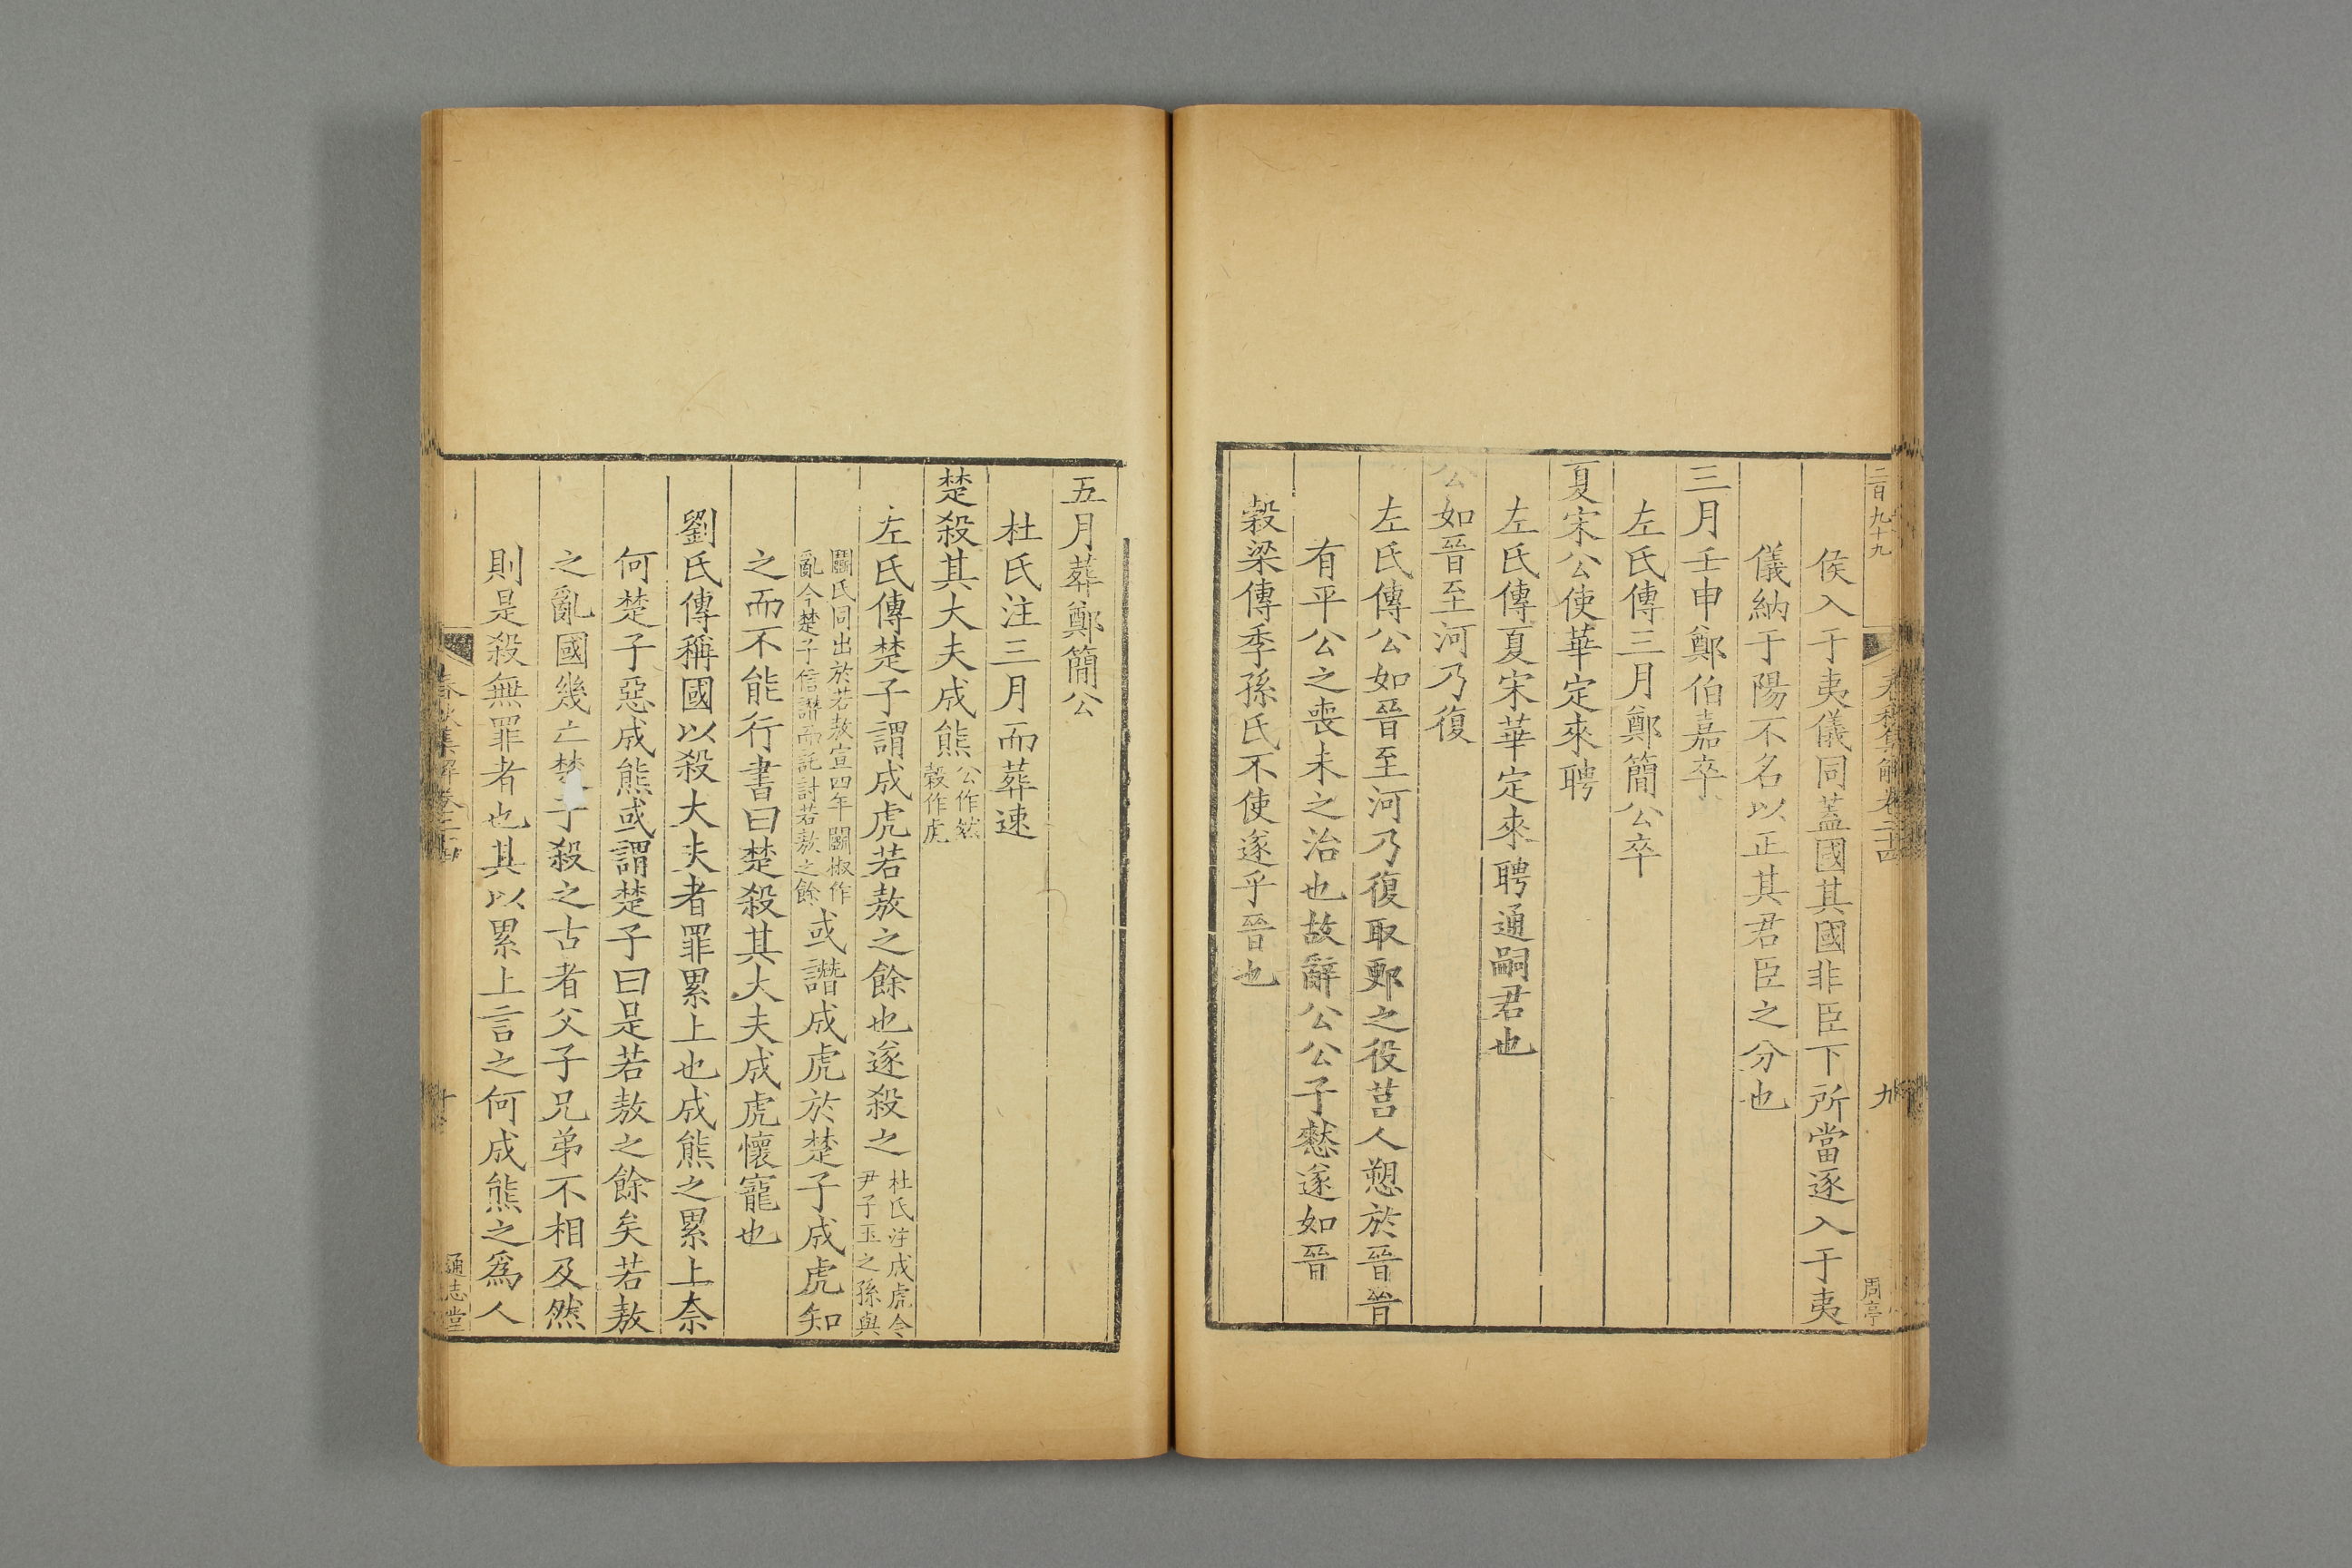 二百九十九
春秋集解卷二十四
九
周亭
侯入于夷儀同蓋國其國非臣下所當逐入于夷
儀納于陽不名以正其君臣之分也
三月壬申鄭伯嘉卒
左氏傳三月鄭簡公卒
夏宋公使華定來聘
左氏傳夏宋華定來聘通嗣君也
公如晉至河乃復
左氏傳公如晉至河乃復取郠之役莒人愬於晉晉
有平公之喪未之治也故辭公公子憖遂如晉
穀梁傳季孫氏不使遂乎晉也
五月葬鄭簡公
杜氏注三月而葬速
楚殺其大夫成熊公作然穀作虎
左氏傳楚子謂成虎若敖之餘也遂殺之杜氏注成虎令尹子玉之孫與
鬬氏同出於若敖宣四年鬬椒作亂今楚子信譖而託討若敖之餘或譖成虎於楚子成虎知
之而不能行書曰楚殺其大夫成虎懷寵也
劉氏傳稱國以殺大夫者罪累上也成熊之累上奈
何楚子惡成熊或謂楚子曰是若敖之餘矣若敖
之亂國幾亡楚子殺之古者父子兄弟不相及然
則是殺無罪者也其以累上言之何成熊之爲人
春秋集解卷二十四
十
通志堂